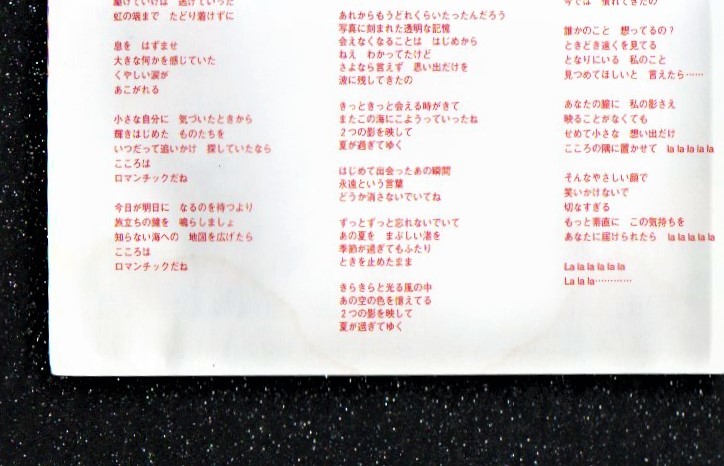 駆けていけば　逃げていった
虹の端まで　たどり着けずに
息を　はずませ
大きな何かを感じていた
くやしい涙が
あこがれる
小さな自分に　気づいたときから
輝きはじめた　ものたちを
いつだって追いかけ　探していたなら
こころは
ロマンチックだね
今日が明日に　なるのを待つより
旅立ちの鐘を　鳴らしましょ
知らない海への　地図を広げたら
こころは
ロマンチックだね
あれからもうどれくらいたったんだろう
写真に刻まれた透明な記憶
会えなくなることは　はじめから
ねえ　わかってたけど
さよなら言えず　思い出だけを
波に残してきたの
きっときっと会える時がきて
またこの海にこようっていったね
２つの影を映して
夏が過ぎてゆく
はじめて出会ったあの瞬間
永遠という言葉
どうか消さないでいてね
ずっとずっと忘れないでいて
あの夏を　まぶしい渚を
季節が過ぎてもふたり
ときを止めたまま
きらきらと光る風の中
あの空の色を憶えてる
２つの影を映して
夏が過ぎてゆく
今では　慣れてきたの
誰かのこと　想ってるの？
ときどき遠くを見てる
となりにいる　私のこと
見つめてほしいと　言えたら……
あなたの瞳に　私の影さえ
映ることがなくても
せめて小さな　想い出だけ
こころの隅に置かせて　la la la la la
そんなやさしい顔で
笑いかけないで
切なすぎる
もっと素直に　この気持ちを
あなたに届けられたら　la la la la la
La la la la la la
La la la…………